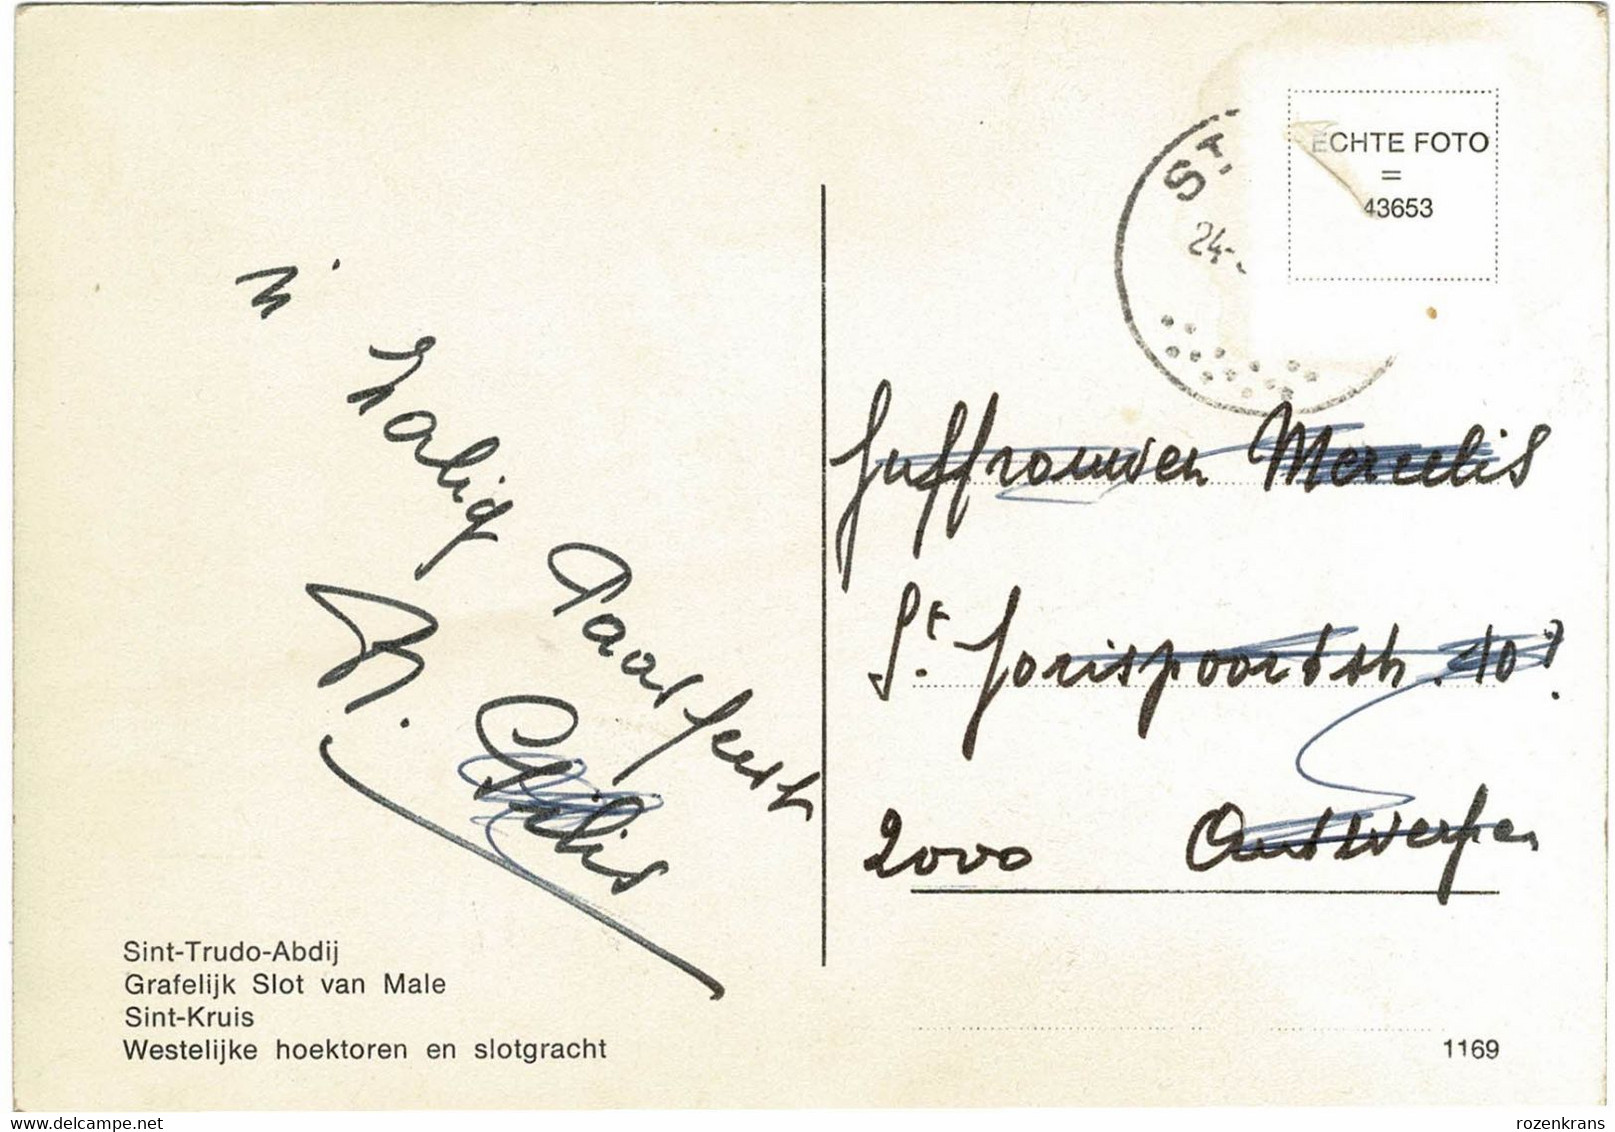 n' zalig Paasfeest
N. Gilis
Sint-Trudo-Abdij
Grafelijk Slot van Male
Sint-Kruis
Westelijke hoektoren en slotgracht
ST
24-
ECHTE FOTO
=
43653
Juffrouwen Mercelis
St. Jorispoortstr. 10
2000 Antwerpen
1169
www.delcampe.net
rozenkrans